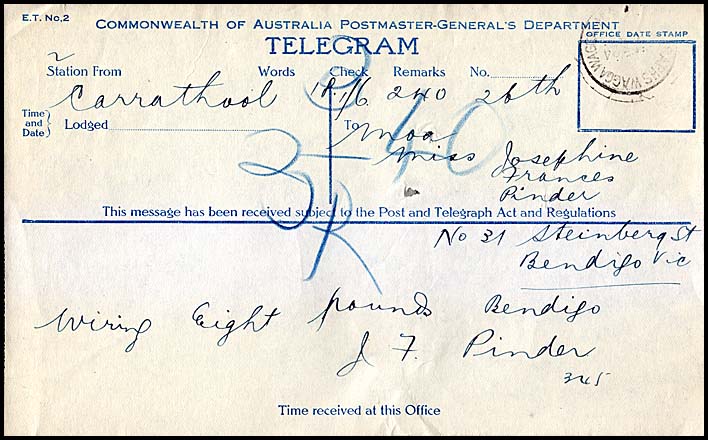 E.T. No,2
COMMONWEALTH OF AUSTRALIA POSTMASTER-GENERAL'S DEPARTMENT
TELEGRAM
OFFICE DATE STAMP
WAGGA WAGG
Station From Words Check Remarks No.
Carrathool 1/6 240 26th
Time and Date} Lodged
To
Moa
Miss Josephine
Frances
Pinder
3-40
This message has been received subject to the Post and Telegraph Act and Regulations
No 31 Steinberg St
Bendigo Vic
Wiring Eight pounds Bendigo
J F. Pinder
345
Time received at this Office